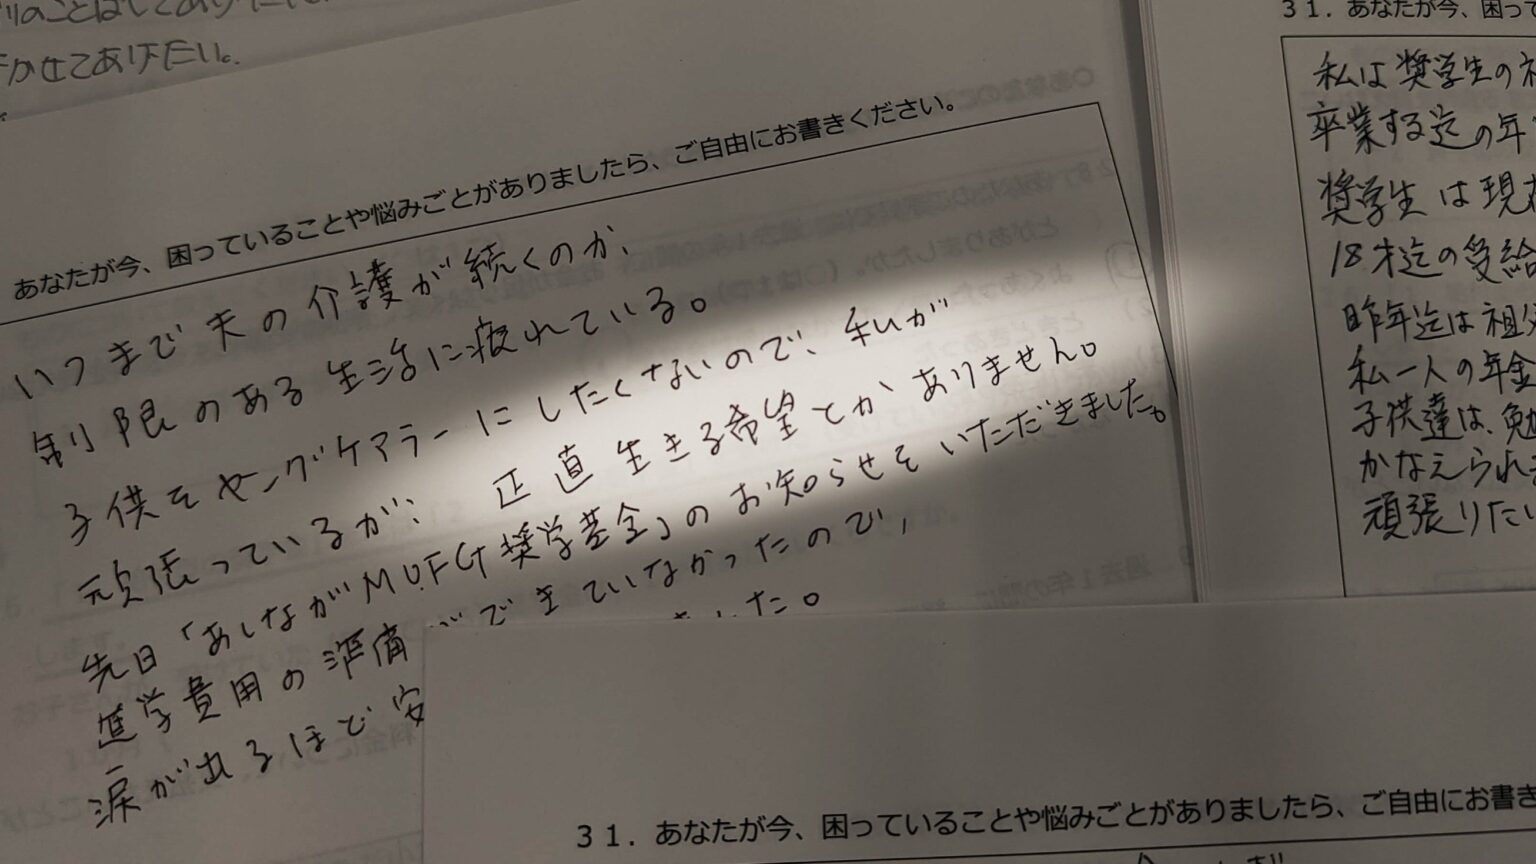 かせてあげたい。
あなたが今、困っていることや悩みごとがありましたら、ご自由にお書きください。
いつまで夫の介護が続くのか、
制限のある生活に疲れている。
子供をヤングケアラーにしたくないので、私が
頑張っているが、正直生きる希望とかありません。
先日「あしながMUFG奨学基金」のお知らせをいただきました。
進学費用の準備ができていなかったので、
涙が出るほど安
ました。
31. あなたが今、困って
私は奨学生の祖
卒業する迄の年
奨学生は現在
18才迄の受給
昨年迄は祖父
私一人の年金
子供達は、勉
かなえられ
頑張りたい
31. あなたが今、困っていることや悩みごとがありましたら、ご自由にお書き